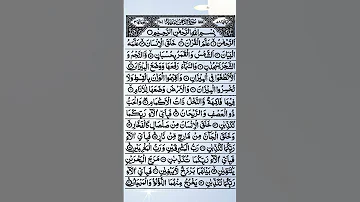 بِسْمِ اللهِ الرَّحْمٰنِ الرَّحِيْمِ
اَلرَّحْمٰنُ ۝ عَلَّمَ الْقُرْاٰنَ ۝ خَلَقَ الْاِنْسَانَ ۝ عَلَّمَهُ
الْبَيَانَ ۝ اَلشَّمْسُ وَالْقَمَرُ بِحُسْبَانٍ ۝ وَّالنَّجْمُ وَ
الشَّجَرُ يَسْجُدٰنِ ۝ وَالسَّمَآءَ رَفَعَهَا وَوَضَعَ الْمِيْزَانَ ۝
اَلَّا تَطْغَوْا فِي الْمِيْزَانِ ۝ وَاَقِيْمُوا الْوَزْنَ بِالْقِسْطِ وَلَا
تُخْسِرُوا الْمِيْزَانَ ۝ وَالْاَرْضَ وَضَعَهَا لِلْاَنَامِ ۝
فِيْهَا فَاكِهَةٌ وَّالنَّخْلُ ذَاتُ الْاَكْمَامِ ۝ وَالْحَبُّ
ذُو الْعَصْفِ وَالرَّيْحَانُ ۝ فَبِاَيِّ اٰلَآءِ رَبِّكُمَا
تُكَذِّبٰنِ ۝ خَلَقَ الْاِنْسَانَ مِنْ صَلْصَالٍ كَالْفَخَّارِ ۝
وَخَلَقَ الْجَآنَّ مِنْ مَّارِجٍ مِّنْ نَّارٍ ۝ فَبِاَيِّ اٰلَآءِ
رَبِّكُمَا تُكَذِّبٰنِ ۝ رَبُّ الْمَشْرِقَيْنِ وَرَبُّ الْمَغْرِبَيْنِ ۝
فَبِاَيِّ اٰلَآءِ رَبِّكُمَا تُكَذِّبٰنِ ۝ مَرَجَ الْبَحْرَيْنِ
يَلْتَقِيٰنِ ۝ بَيْنَهُمَا بَرْزَخٌ لَّا يَبْغِيٰنِ ۝ فَبِاَيِّ اٰلَآءِ
رَبِّكُمَا تُكَذِّبٰنِ ۝ يَخْرُجُ مِنْهُمَا اللُّؤْلُؤُ وَالْمَرْجَانُ